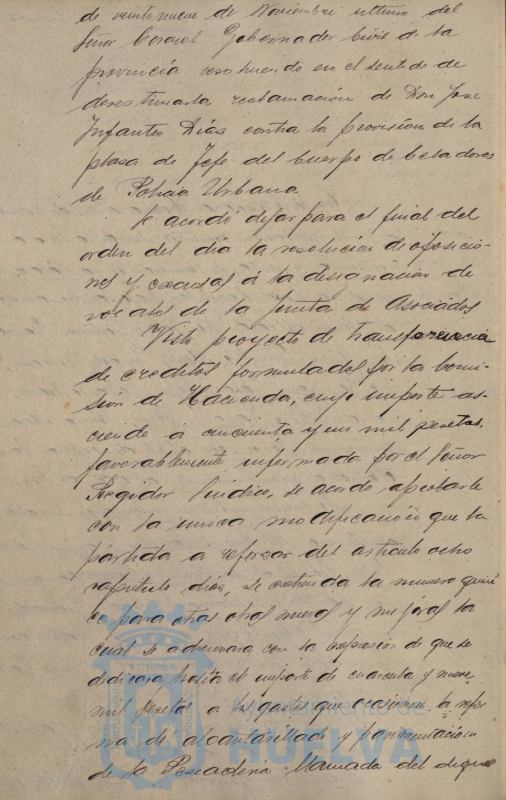 de veintinueve de Noviembre ultimo del
Señor Coronel Gobernador Civil de la
provincia resolviendo en el sentido de
desestimar la reclamación de Don José
Infantes Dias contra la provisión de la
plasa de Jefe del Cuerpo de Celadores
de Policia Urbana
Se acordó dejar para el final del
orden del dia la resolución de oposicio-
nes y excusas á la designación de
vocales de la Junta de Asociados
Visto proyecto de transferencia
de creditos formulados por la Comi-
sión de Hacienda, cuyo importe as-
ciende á cincuenta y un mil pesetas,
favorablemente informada por el Señor
Regidor Sindico, se acordo aprobarle
con la unica modificación que la
partida á reforsar del articulo ocho
capitulo dies, se entienda la numero quin-
ce para otras obras nuevas y mejoras la
cual se adicionara con la expresión de que se
dedicara hasta el importe de cuarenta y nueve
mil pesetas a los gastos que ocasionen la refor-
ma de alcantarillado y pavimentación
de la Pescaderia llamada del dique
Ayuntamiento de
HUELVA